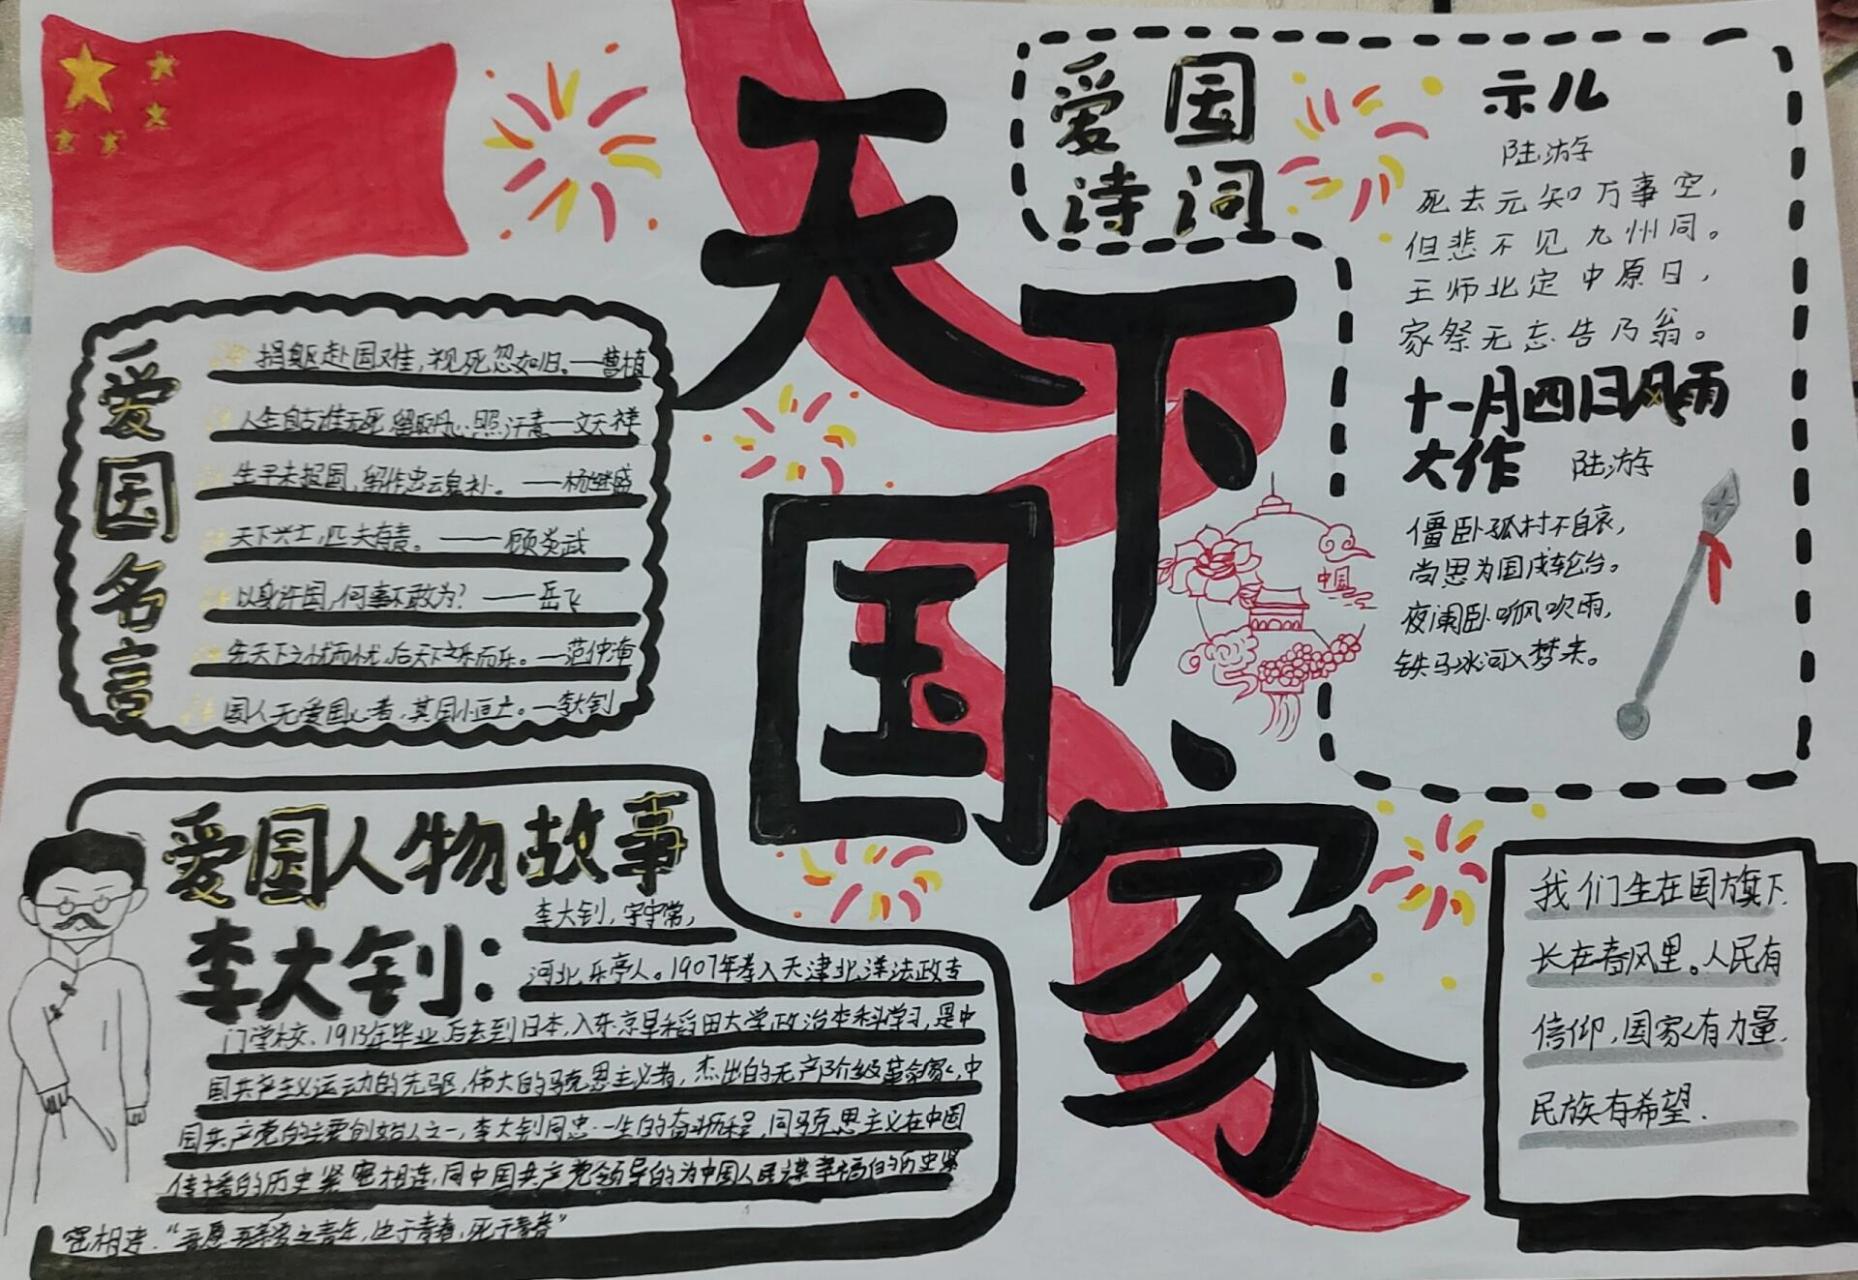 天下国家
爱国名言
捐躯赴国难,视死忽如归。——曹植
人生自古谁无死,留取丹心照汗青——文天祥
生平未报国,留作忠云鬼补。——杨继盛
天下兴亡,匹夫有责。——顾炎武
以身许国,何事不敢为?——岳飞
先天下之忧而忧,后天下之乐而乐。—范仲淹
国人无爱国心者,其国小恒亡。—李大钊
爱国诗词
示儿
陆游
死去元知万事空,
但悲不见九州同。
王师北定中原日,
家祭无忘告乃翁。
十一月四日风雨
大作 陆游
僵卧孤村不自哀,
尚思为国戍轮台。
夜阑卧听风吹雨,
铁马冰河入梦来。
中国
爱国人物故事
李大钊:
李大钊,字守常,
河北乐亭人。1907年考入天津北洋法政专
门学校、1913年毕业后去到日本,入东京早稻田大学政治本科学习,是中
国共产主义运动的先驱,伟大的马克思主义者,杰出的无产阶级革命家,中
国共产党的主要创始人之一,李大钊同志一生的奋斗历程,同马克思主义在中国
传播的历史紧密相连,同中国共产党领导的为中国人民谋幸福的历史紧
密相连.“吾愿吾亲爱之青年,生于青春,死于青春”
我们生在国旗下.
长在春风里。人民有
信仰,国家有力量.
民族有希望.